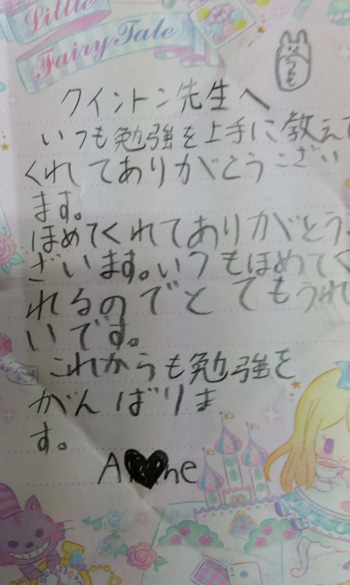 Little
Fairy Tale
クイントン先生へ
いつも勉強を上手に教えて
くれてありがとうござい
ます。
ほめてくれてありがとう
ざいます。いつもほめてく
れるのでとてもうれ
いです。
これからも勉強を
がんばりま
す。
A♥ne